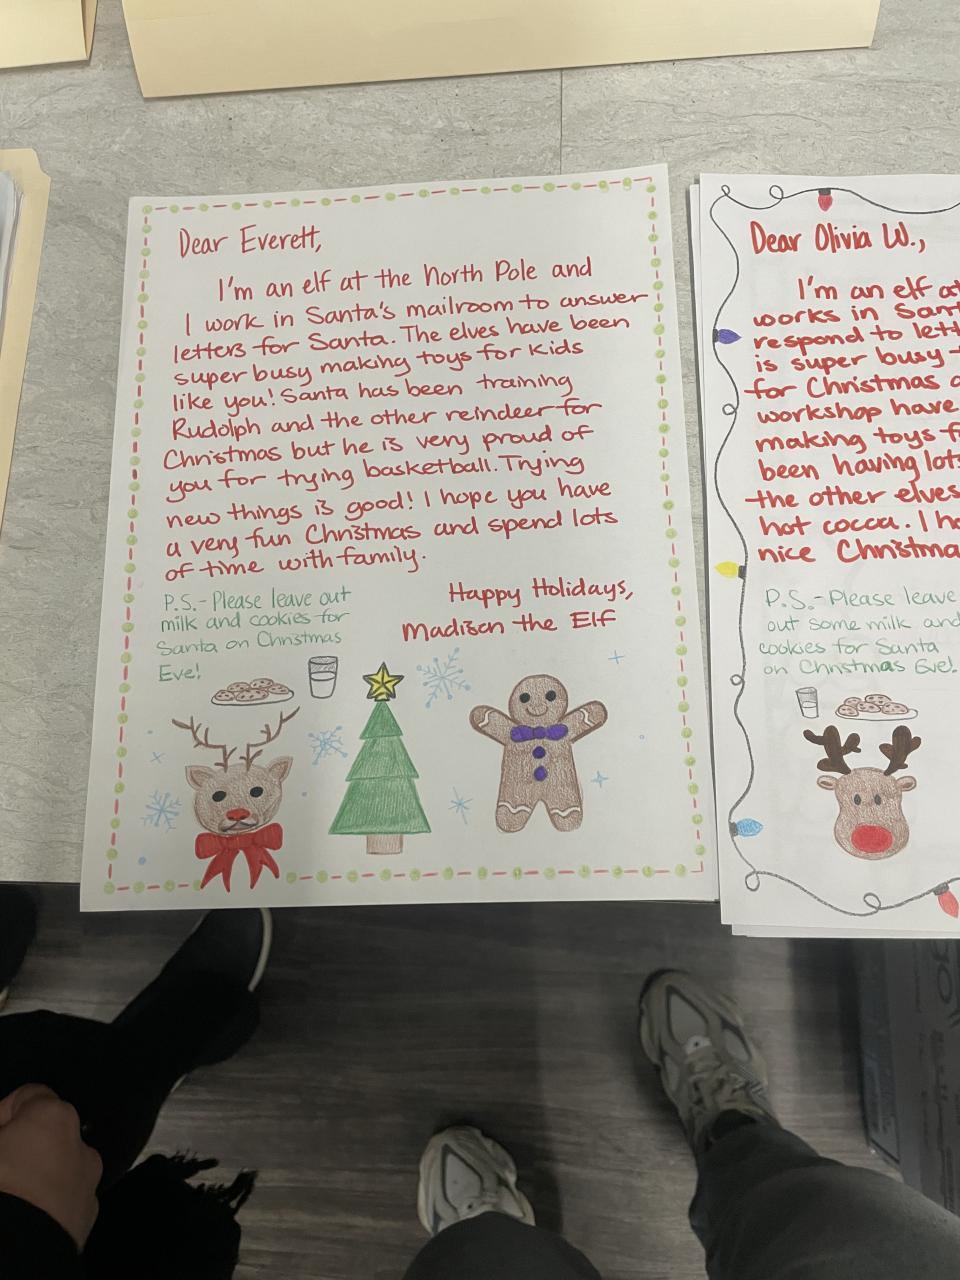 Dear Everett,
I'm an elf at the North Pole and
I work in Santa's mailroom to answer
letters for Santa. The elves have been
super busy making toys for kids
like you! Santa has been training
Rudolph and the other reindeer for
Christmas but he is very proud of
you for trying basketball. Trying
new things is good! I hope you have
a very fun Christmas and spend lots
of time with family.
Happy Holidays,
Madison the Elf
P.S.- Please leave out
milk and cookies for
Santa on Christmas
Eve!
Dear Olivia W.,
I'm an elf at
works in
respond to
is super busy
for Christmas
workshop have
making toys
been having lots
the other elves
hot cocoa. I
nice
P.S.- Please leave
out some milk and
cookies for Santa
on Christmas Eve!